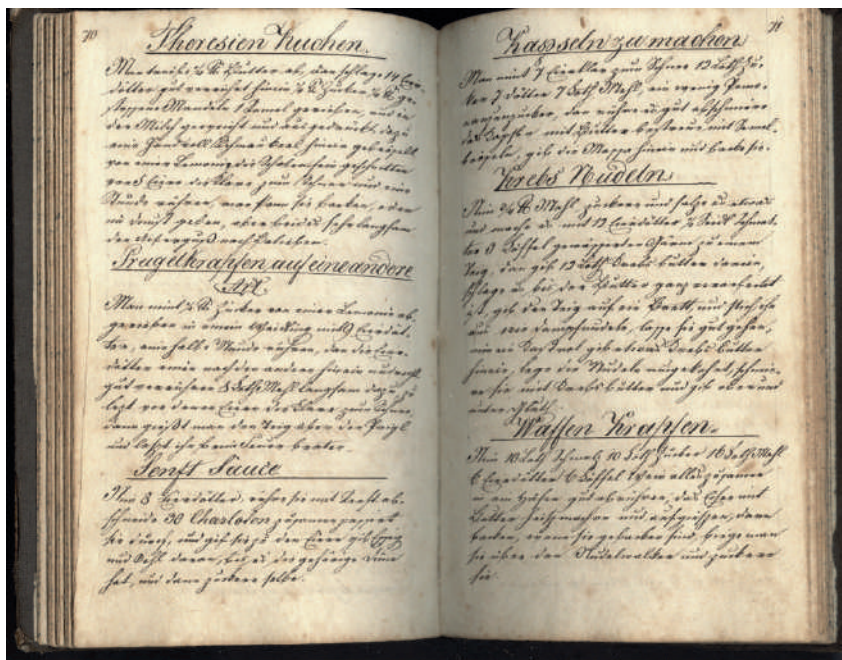 70
Theresien Kuchen.
Man treibt 1/2 tt. Butter ab, dan schlage 14 Eier-
dötter gut verrührt hinein 1/2 tt. Zucker 1/2 tt. ge-
stossene Mandeln 1 Semel gerieben, und in
der Milch geweicht und ausgedrückt, dazu
eine Handvoll hinein
von einer Lemonie die Schalen fein geschnitten
von 8 Eier die Klare zum Schnee und eine
Stunde rühren, man kann sie backen, oder
in Dunst geben, aber beides sehr langsam
den Aufguß nach Belieben.
Prügelkrapfen auf eine andere
Art
Man nimt 1/2 tt. Zucker von einer Lemonie ab-
gerieben in einem Weidling mit 9 Eierdöt-
ter, eine halbe Stunde rühren, dan die Eier-
dötter einer nach der andern hinein und recht
gut verrühren 8 Loth Mehl langsam dazu zu
lezt von denen Eier das Klare zum Schnee,
dann gießt man den Teig über den Prügl
und laßt ihn beim Feuer braten.
Senft Sauce
Nim 8 Eierdötter, rühre sie mit Senft ab.
schneide 30 Charlodon zusamm passirt
sie durch, und gib sie zu den Eier gib Essig
und Oehl daran, bis es die gehörige Düne
hat, und dann zuckere selbe.
71
Kasseln zu machen
Man nimt 7 Eierklar zum Schnee 12 Loth Zu-
ker 7 Dötter 7 Loth Mehl, ein wenig Pome-
ranzenzucker, dan rühre es gut abschmiere
die Kapsel mit Butter bestreue mit Semel-
bröseln, gib die Massa hinein und backe sie.
Krebs Nudeln
Nim 3/4 tt Mehl zuckere und salze es etwas
und mache es mit 12 Eierdötter 1/2 Seidl Schmet-
ten 3 Löffel gewässerten Germ zu einem
Teig, dan gib 12 Loth Krebs butter darein,
schlage in bis der Butter ganz verarbeitet
ist, gib den Teig auf ein Brett, und stich ihn
aus wie Dampfnudeln, lasse sie gut gehen,
nim ein Kastrol gib etwas Krebs butter
hinein, lege die Nudeln eingekehrt, schmie-
re sie mit Krebs butter und gib oben und
unten Gluth.
Waffen Krapfen.
Nim 10 Loth Schmalz 10 Loth Zucker 16 Loth Mehl
6 Eierdötter 6 Löffel Wein alles zusamm
in ein Häfen gut abrühren, das Eisen mit
Butter heiß machen und aufgiessen, dann
backen, wenn sie gebacken sind, biege man
sie über den Nudelwalker und zuckere
sie.